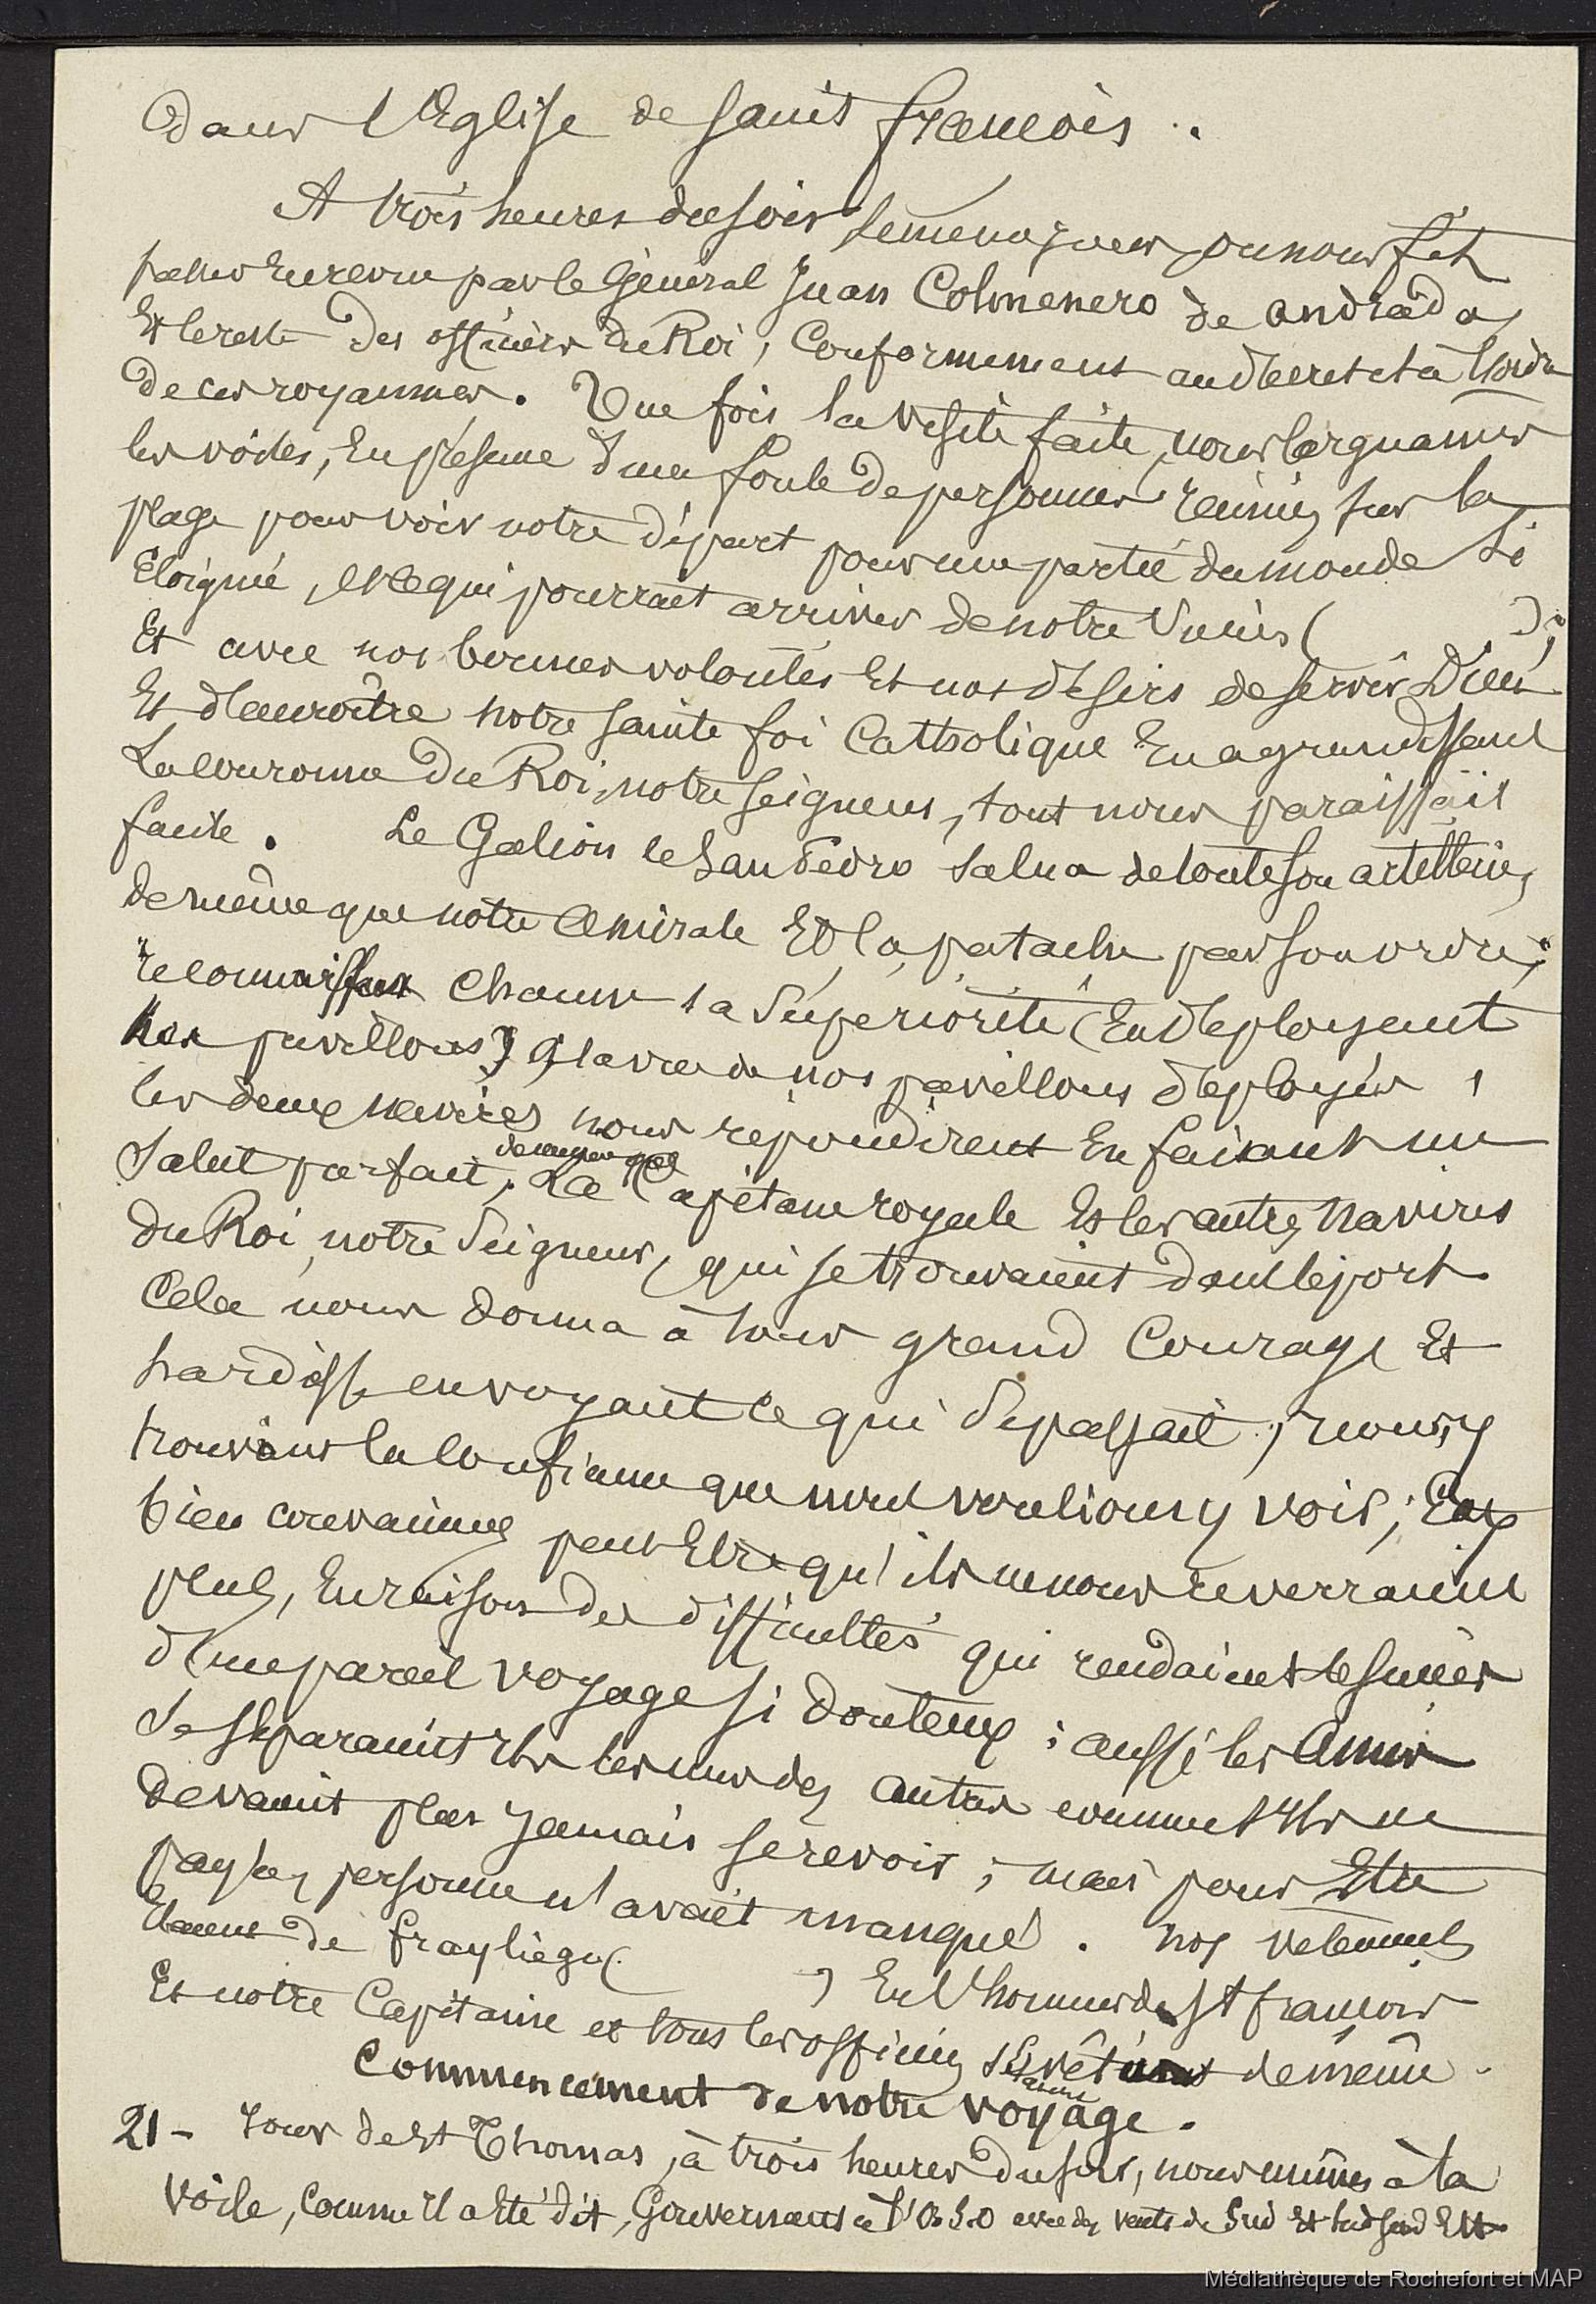 dans l'Eglise de saint françois.
A trois heures du soir le même jour on nous fit
passer en revue par le Général Juan Colmenero de andrada,
Et le reste des officiers du Roi, Conformement au décret et à l'ordre
de ces royaumes. Une fois la visite faite, nous larguames
les voiles, En présence d'une foule de personnes réunies sur la
plage pour voir notre départ pour une partie du monde si
Eloignée, et ce qui pourrait arriver de notre succès ( );
Et avec nos bonnes volontés Et nos désirs de servir Dieu
Et d'accroître notre sainte foi Catholique En agrandissant
La couronne du Roi, notre seigneur, tout nous paraissait
facile. Le Galion le San Pedro salua de toute son artillerie,
de même que notre Amirale Et la patache par son ordre;
reconnaissant chacune sa Supériorité (En déployant
nos pavillons) A la vue de nos pavillons déployés,
les deux navires nous répondirent En faisant un
Salut parfait, de même que La Capitane royale Et les autres navires
du Roi, notre Seigneur, qui se trouvaient dans le port.
Cela nous donna à tous grand Courage Et
hardiesse en voyant ce qui se passait; nous y
trouvions la confiance que nous voulions y voir; Eux
bien convaincus peut Etre qu'ils ne nous reverraient
plus, En raison des difficultés qui rendaient le succès
d'un pareil voyage si douteux; aussi les Amis
se séparaient ils les uns des autres comme s'ils ne
devaient plus jamais se revoir; mais pour Etre
payée, personne n'avait manqué. Nos vêtements
Etaient de frayliego ( ) En l'honneur de St françois
Et notre Capitaine et tous les officiers se vêtirent de même.
Commencement de notre voyage.
21 - Jour de St Thomas, à trois heures du soir, nous mîmes à la
voile, comme il a été dit, Gouvernant à l'O.S.O avec des vents de Sud Et Sud Sud Est.
Médiathèque de Rochefort et MAP